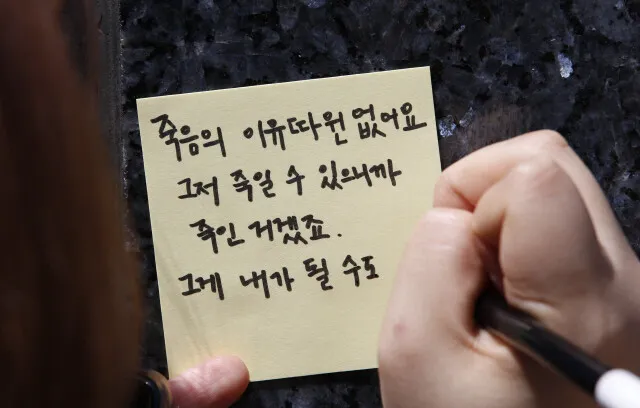 죽음의 이유따윈 없어요
그저 죽일 수 있으니까
죽인 거겠죠.
그게 내가 될 수도